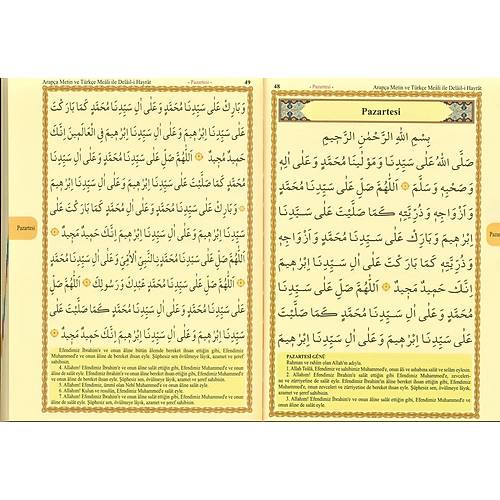 48 - Pazartesi - Arapça Metin ve Türkçe Meâli ile Delâil-i Hayrât
Pazartesi
بِسْمِ اللّٰهِ الرَّحْمٰنِ الرَّحِيمِ
صَلَّى اللّٰهُ عَلٰى سَيِّدِنَا وَمَوْلٰينَا مُحَمَّدٍ وَعَلٰى اٰلِهِ
وَصَحْبِهِ وَسَلَّمَ ۞ اَللّٰهُمَّ صَلِّ عَلٰى سَيِّدِنَا مُحَمَّدٍ
وَاَزْوَاجِهِ وَذُرِّيَّتِهِ كَمَا صَلَّيْتَ عَلٰى سَيِّدِنَا
اِبْرٰهِيمَ وَبَارِكْ عَلٰى سَيِّدِنَا مُحَمَّدٍ وَاَزْوَاجِهِ
وَذُرِّيَّتِهِ كَمَا بَارَكْتَ عَلٰى اٰلِ سَيِّدِنَا اِبْرٰهِيمَ
اِنَّكَ حَمِيدٌ مَجِيدٌ ۞ اَللّٰهُمَّ صَلِّ عَلٰى سَيِّدِنَا
مُحَمَّدٍ وَعَلٰى اٰلِ سَيِّدِنَا مُحَمَّدٍ كَمَا صَلَّيْتَ عَلٰى
سَيِّدِنَا اِبْرٰهِيمَ وَعَلٰى اٰلِ سَيِّدِنَا اِبْرٰهِيمَ
PAZARTESİ GÜNÜ
Rahman ve rahim olan Allah'ın adıyla.
1. Allah Teâlâ, Efendimiz ve sahibimiz Muhammed'e, onun âli ve ashabına salât ve selâm eylesin.
2. Allahım! Efendimiz İbrahim'e salât ettiğin gibi, Efendimiz Muhammed'e, zevcelerine ve zürriyetine de salât eyle. Efendimiz İbrahim'in âline bereket ihsan ettiğin gibi, Efendimiz Muhammed'e, onun zevcelerine ve zürriyetine de bereket ihsan eyle. Şüphesiz sen övülmeye lâyık, azamet ve şeref sahibisin.
3. Allahım! Efendimiz İbrahim'e ve onun âline salât ettiğin gibi, Efendimiz Muhammed'e ve onun âline de salât eyle.
Arapça Metin ve Türkçe Meâli ile Delâil-i Hayrât - Pazartesi - 49
وَبَارِكْ عَلٰى سَيِّدِنَا مُحَمَّدٍ وَعَلٰى اٰلِ سَيِّدِنَا مُحَمَّدٍ كَمَا بَارَكْتَ
عَلٰى سَيِّدِنَا اِبْرٰهِيمَ وَعَلٰى اٰلِ سَيِّدِنَا اِبْرٰهِيمَ فِي الْعَالَمِينَ اِنَّكَ
حَمِيدٌ مَجِيدٌ ۞ اَللّٰهُمَّ صَلِّ عَلٰى سَيِّدِنَا مُحَمَّدٍ وَعَلٰى اٰلِ سَيِّدِنَا
مُحَمَّدٍ كَمَا صَلَّيْتَ عَلٰى سَيِّدِنَا اِبْرٰهِيمَ وَعَلٰى اٰلِ سَيِّدِنَا اِبْرٰهِيمَ
۞ وَبَارِكْ عَلٰى سَيِّدِنَا مُحَمَّدٍ وَعَلٰى اٰلِ سَيِّدِنَا مُحَمَّدٍ كَمَا بَارَكْتَ عَلٰى
سَيِّدِنَا اِبْرٰهِيمَ وَعَلٰى اٰلِ سَيِّدِنَا اِبْرٰهِيمَ اِنَّكَ حَمِيدٌ مَجِيدٌ ۞
اَللّٰهُمَّ صَلِّ عَلٰى سَيِّدِنَا مُحَمَّدٍ النَّبِيِّ الْاُمِّيِّ وَعَلٰى اٰلِ سَيِّدِنَا مُحَمَّدٍ
۞ اَللّٰهُمَّ صَلِّ عَلٰى سَيِّدِنَا مُحَمَّدٍ عَبْدِكَ وَرَسُولِكَ ۞ اَللّٰهُمَّ صَلِّ
عَلٰى سَيِّدِنَا مُحَمَّدٍ وَعَلٰى اٰلِ سَيِّدِنَا مُحَمَّدٍ كَمَا صَلَّيْتَ عَلٰى
سَيِّدِنَا اِبْرٰهِيمَ وَعَلٰى اٰلِ سَيِّدِنَا اِبْرٰهِيمَ اِنَّكَ حَمِيدٌ مَجِيدٌ ۞
Efendimiz İbrahim'e ve onun âline bütün âlemde bereket ihsan ettiğin gibi, Efendimiz Muhammed'e ve onun âline de bereket ihsan eyle. Şüphesiz sen övülmeye lâyık, azamet ve şeref sahibisin.
4. Allahım! Efendimiz İbrahim'e ve onun âline salât ettiğin gibi, Efendimiz Muhammed'e ve onun âline de salât eyle. Efendimiz İbrahim'e ve onun âline bereket ihsan ettiğin gibi, Efendimiz Muhammed'e ve onun âline de bereket ihsan eyle. Şüphesiz sen, övülmeye lâyık, azamet ve şeref sahibisin.
5. Allahım! Efendimiz, ümmî olan Nebî Muhammed'e ve onun âline salât eyle.
6. Allahım! Kulun ve resulün, Efendimiz Muhammed'e salât eyle.
7. Allahım! Efendimiz İbrahim'e ve onun âline salât ettiğin gibi, Efendimiz Muhammed'e ve onun âline de salât eyle. Şüphesiz sen övülmeye lâyık, azamet ve şeref sahibisin.
Pazartesi